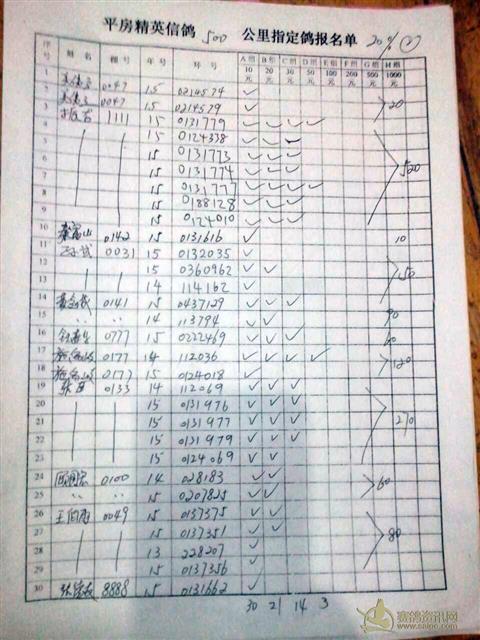 平房精英信鸽 500 公里指定鸽报名单 20% (2)
序号 姓名 棚号 年号 环号 A组10元 B组20元 C组30元 D组50元 E组100元 F组200元 G组500元 H组1000元
1 0047 15 0214574 ✓
2 0047 15 0214579 ✓ 20
3 1111 15 0131779 ✓ ✓ ✓ ✓
4 15 0124338 ✓ ✓ ✓
5 15 0131773 ✓ ✓ ✓
6 15 0131774 ✓ ✓ ✓ 520
7 15 0131777 ✓ ✓ ✓ ✓
8 15 0188128 ✓ ✓ ✓
9 15 0124010 ✓ ✓ ✓
10 0142 15 0131616 ✓ 10
11 0031 15 0132035 ✓
12 15 0360962 ✓ ✓ 50
13 14 114162 ✓
14 0141 15 0437129 ✓ ✓ ✓
15 〃 14 113794 ✓ ✓ 90
16 0777 15 0222469 ✓ ✓ ✓ 60
17 0177 14 112036 ✓ ✓ ✓ ✓
18 0177 15 0124018 ✓ 120
19 0133 14 112069 ✓ ✓ ✓
20 15 0131976 ✓ ✓ ✓
21 15 0131977 ✓ ✓ ✓ 270
22 15 0131979 ✓ ✓ ✓
23 15 0124069 ✓ ✓
24 0100 14 028183 ✓ ✓
25 〃 〃 15 0207825 ✓ ✓ 60
26 0049 15 0137375 ✓ ✓
27 15 0137351 ✓ ✓
28 13 228207 ✓ 80
29 15 0137356 ✓
30 8888 15 0131662 ✓
30 21 14 3
赛鸽资讯网
www.saige.com